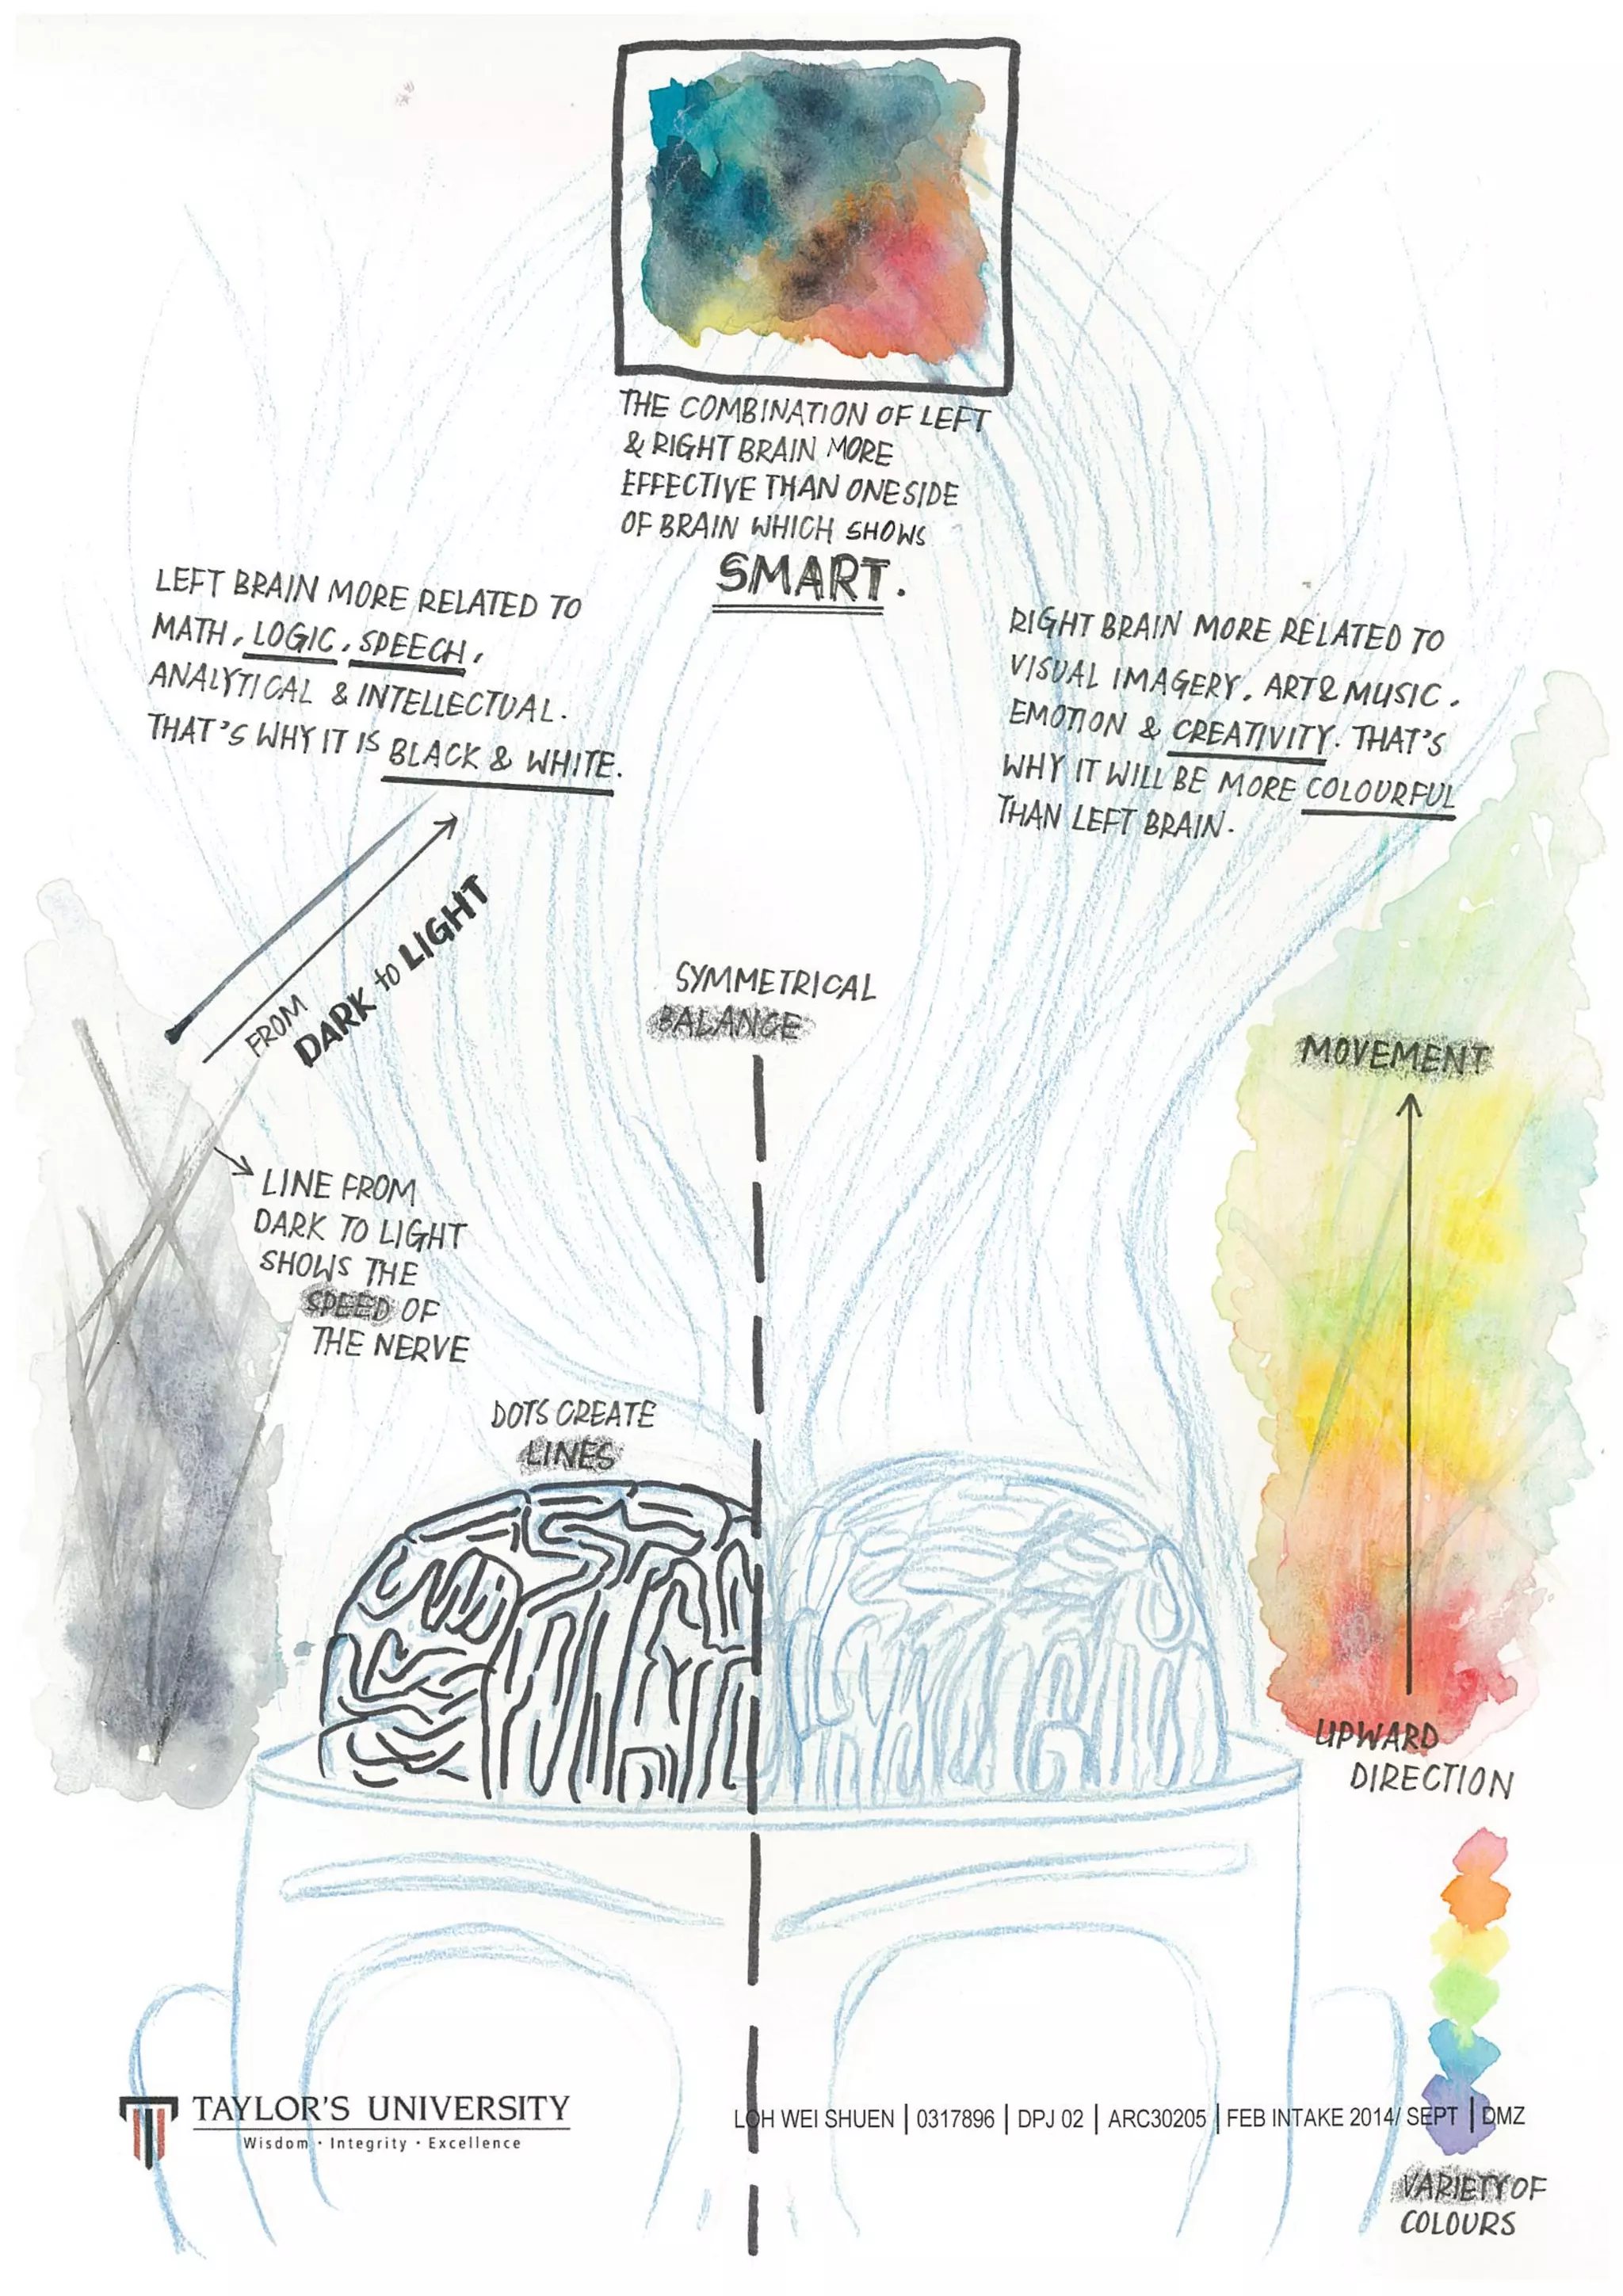 THE COMBINATION OF LEFT
& RIGHT BRAIN MORE
EFFECTIVE THAN ONE SIDE
OF BRAIN WHICH SHOWS
SMART.
LEFT BRAIN MORE RELATED TO
MATH, LOGIC, SPEECH,
ANALYTICAL & INTELLECTUAL.
THAT'S WHY IT IS BLACK & WHITE.
RIGHT BRAIN MORE RELATED TO
VISUAL IMAGERY, ART & MUSIC,
EMOTION & CREATIVITY. THAT'S
WHY IT WILL BE MORE COLOURFUL
THAN LEFT BRAIN.
FROM
DARK to LIGHT
SYMMETRICAL
BALANCE
MOVEMENT
LINE FROM
DARK TO LIGHT
SHOWS THE
SPEED OF
THE NERVE
DOTS CREATE
LINES
UPWARD
DIRECTION
TAYLOR'S UNIVERSITY
Wisdom · Integrity · Excellence
LOH WEI SHUEN | 0317896 | DPJ 02 | ARC30205 | FEB INTAKE 2014/ SEPT | DMZ
VARIETY OF
COLOURS